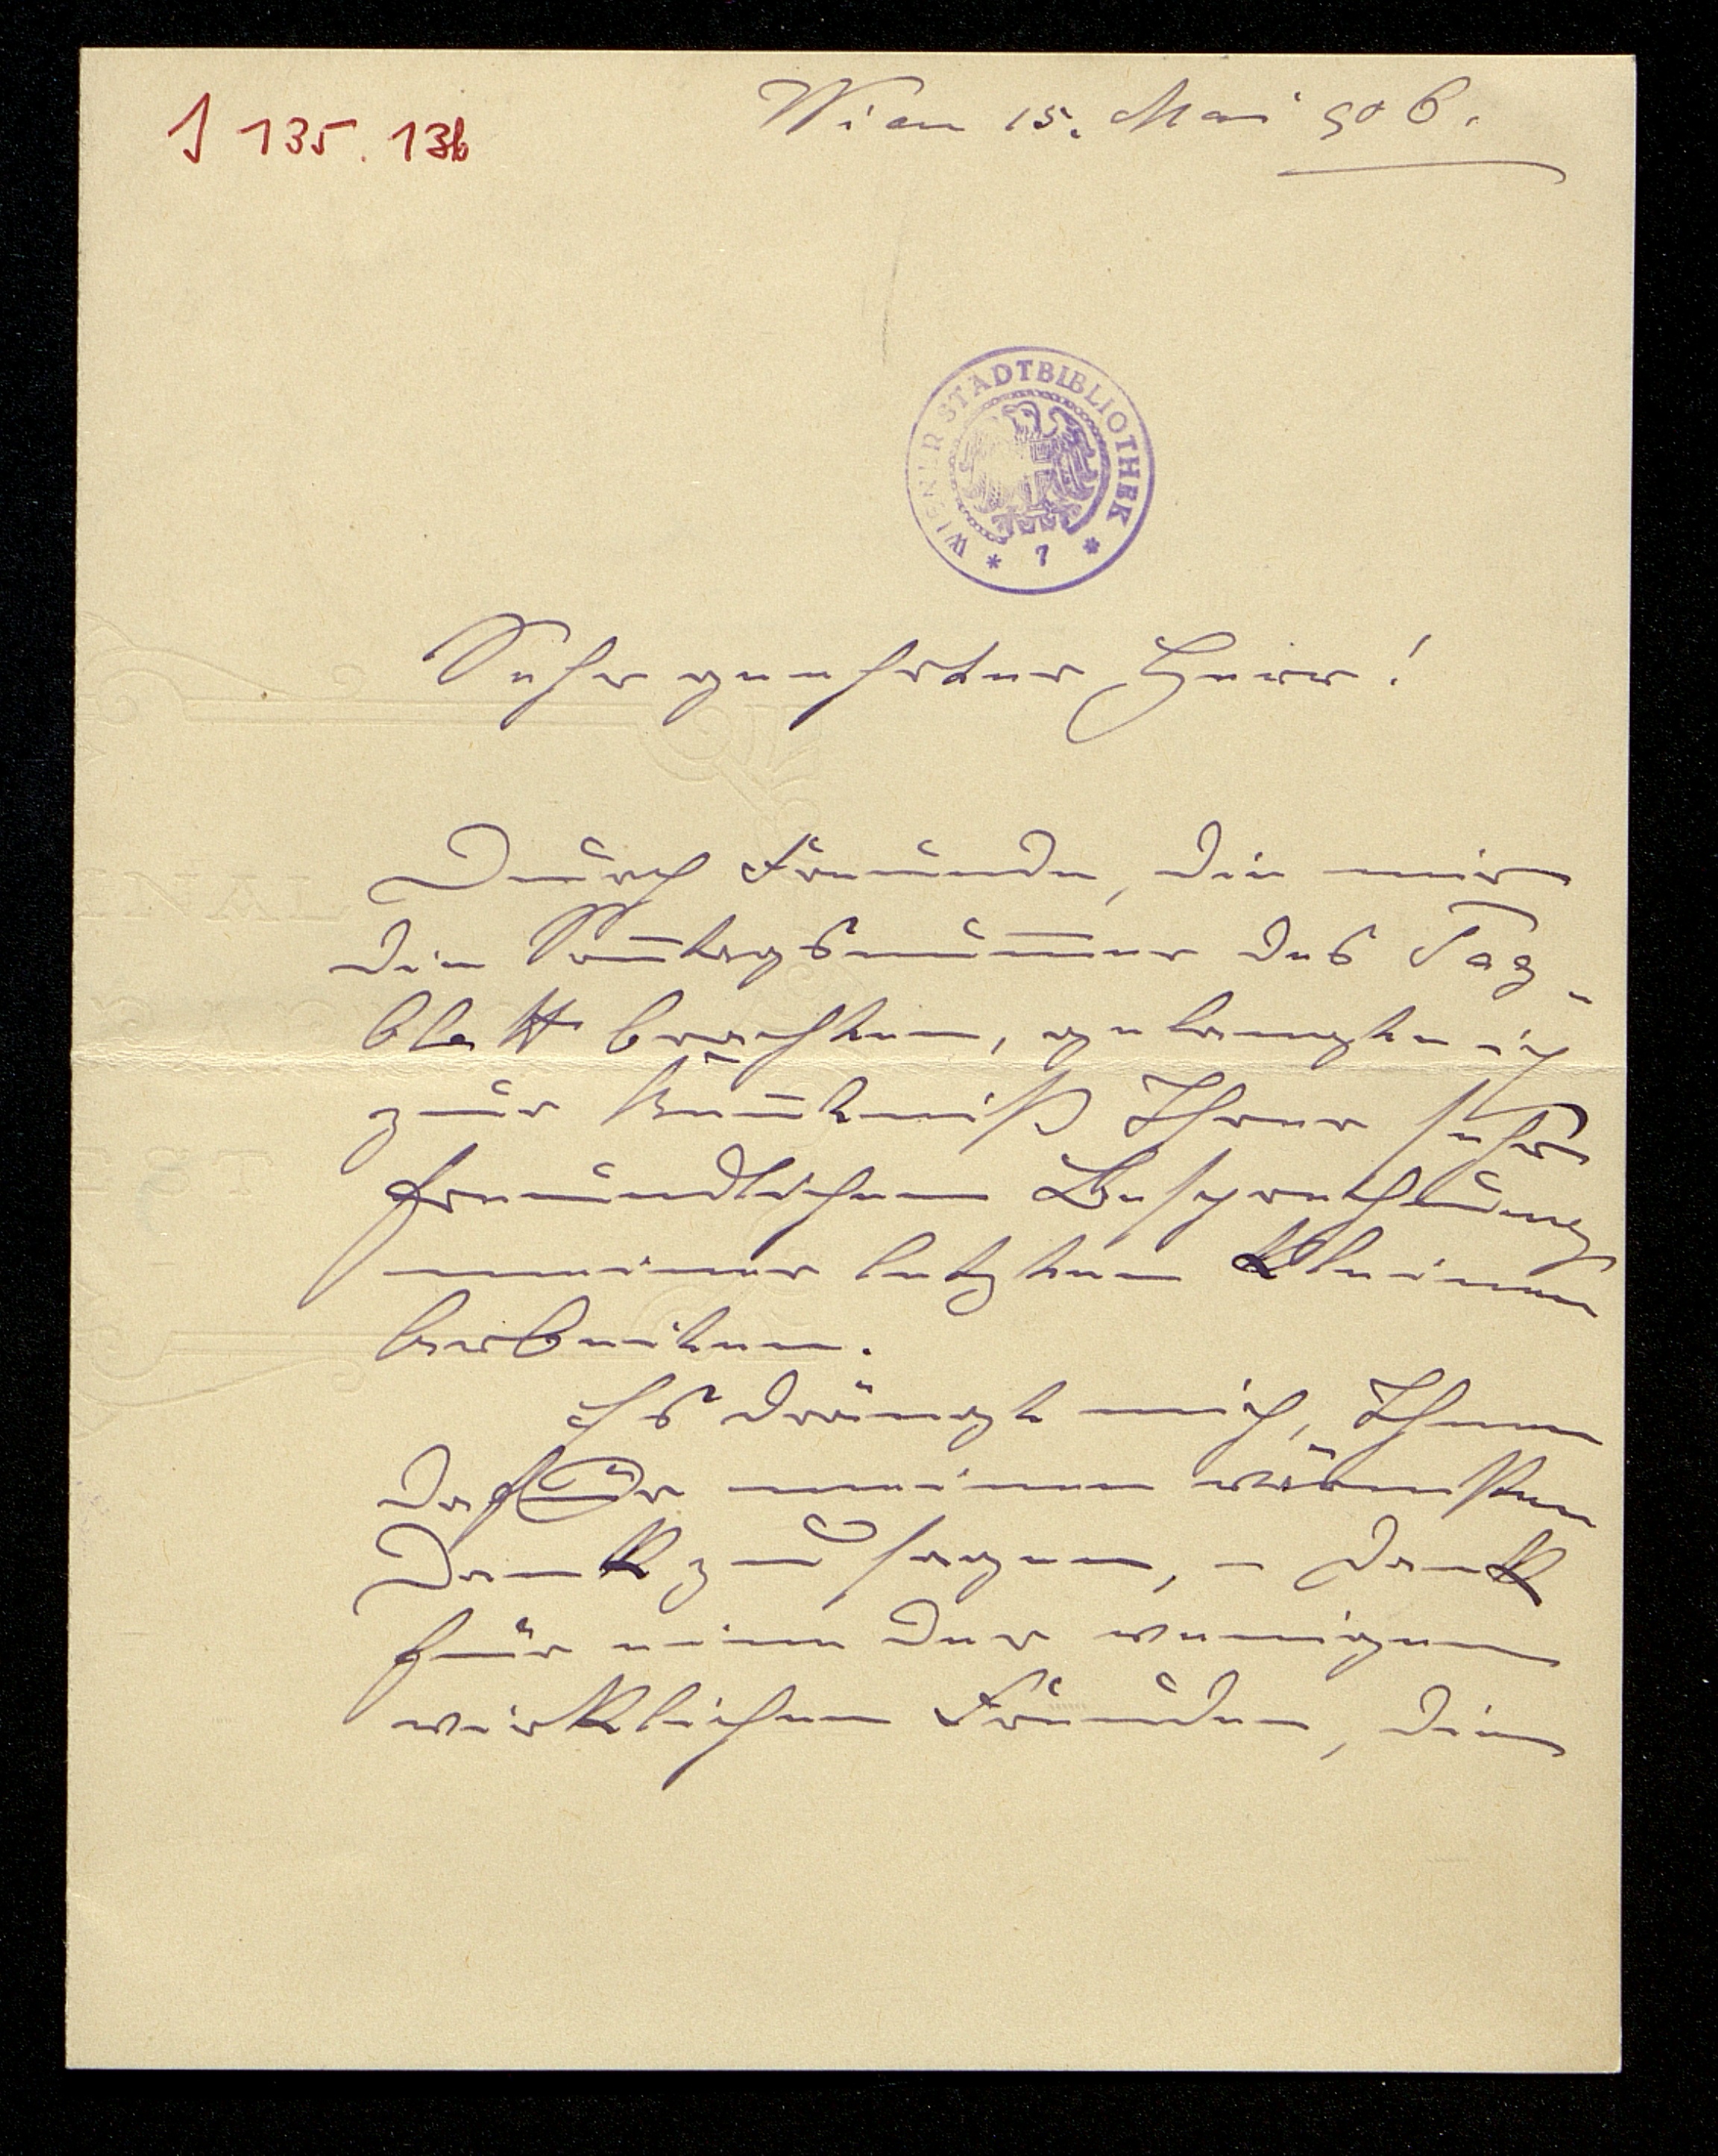 J 135.136
Wien 15. Mai 906.
WIENER STADTBIBLIOTHEK
* 7 *
Sehr geehrter Herr!
Durch Freunde, die mir
die Son̅tagsnum̅er des Tag-
blatt brachten, gelangte ich
zur Ken̅tniß Ihrer sehr
freundlichen Besprechung
meiner letzten kleinen
Arbeiten.
Es drängt mich, Ihnen
dafür meinen wärmsten
Dank zu sagen, – Dank
für eine der wenigen
wirklichen Freuden, die